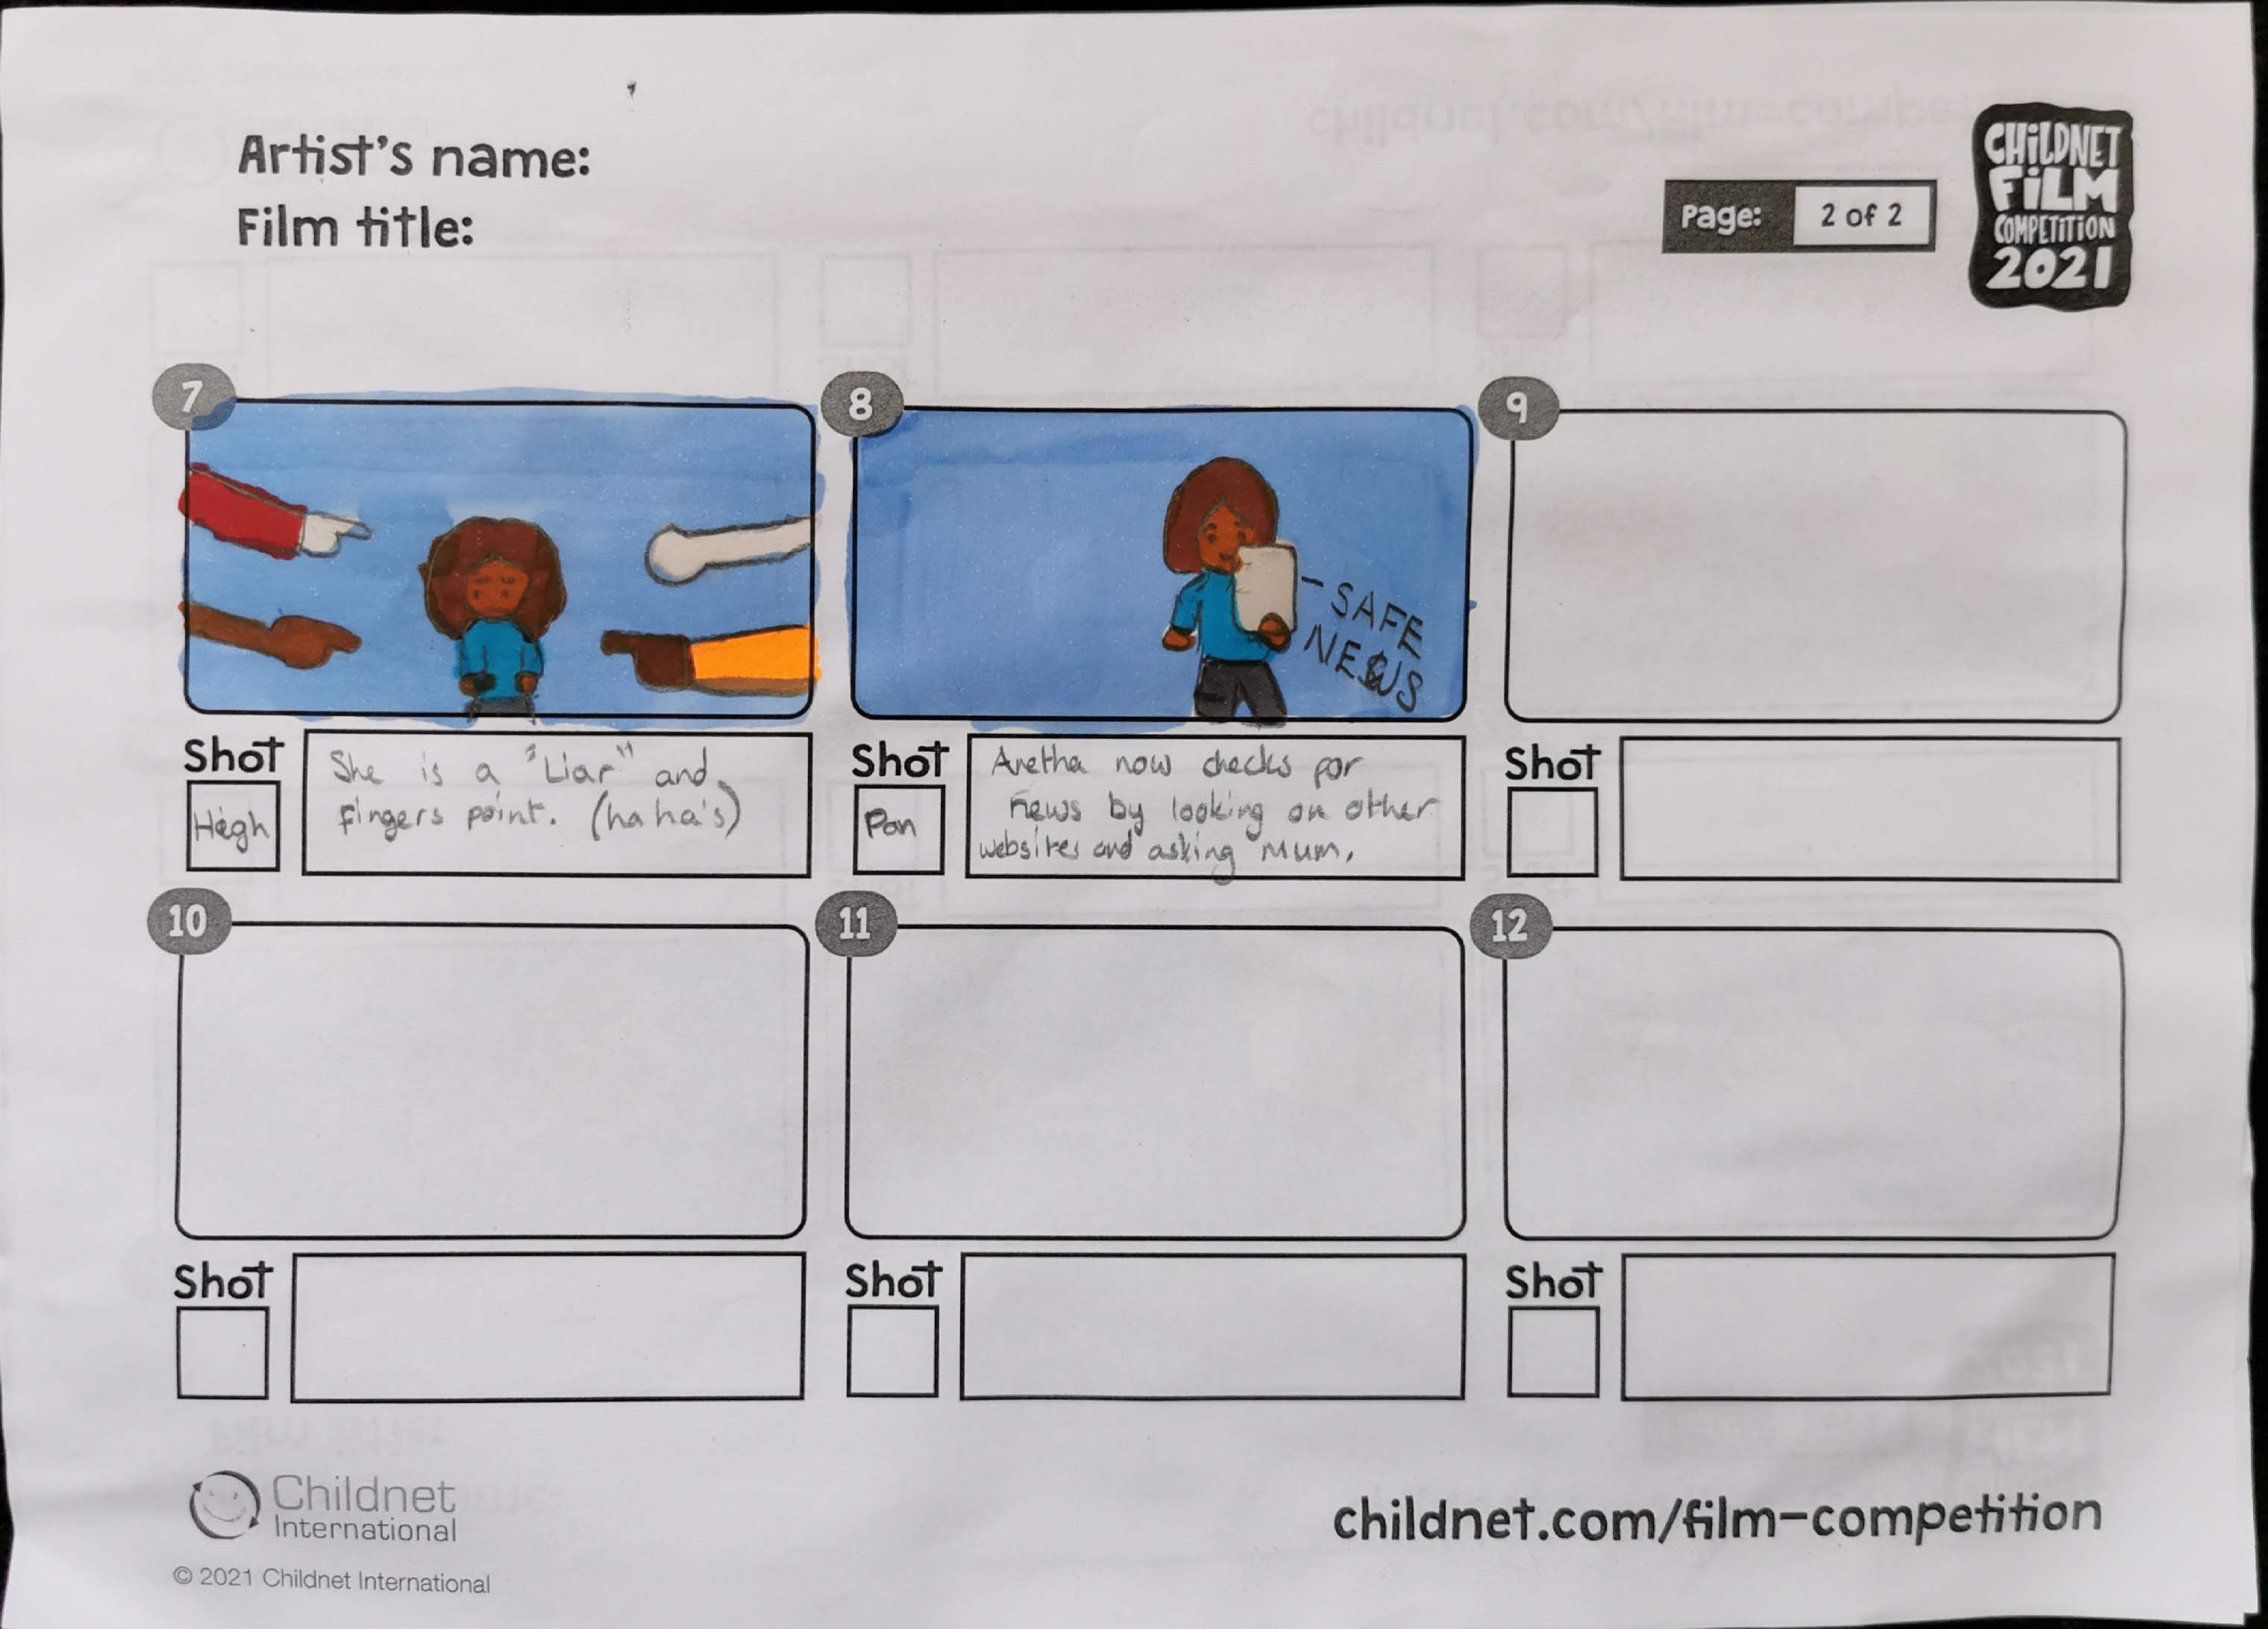 Artist's name:
Film title:
Page: 2 of 2
CHiLDNET
FiLM
COMPETiTiON
2021
7
8
9
- SAFE
NEWS
Shot
High
She is a "Liar" and
fingers point. (ha ha's)
Shot
Pan
Aretha now checks for
news by looking on other
websites and asking Mum.
Shot
10
11
12
Shot
Shot
Shot
Childnet
International
© 2021 Childnet International
childnet.com/film-competition